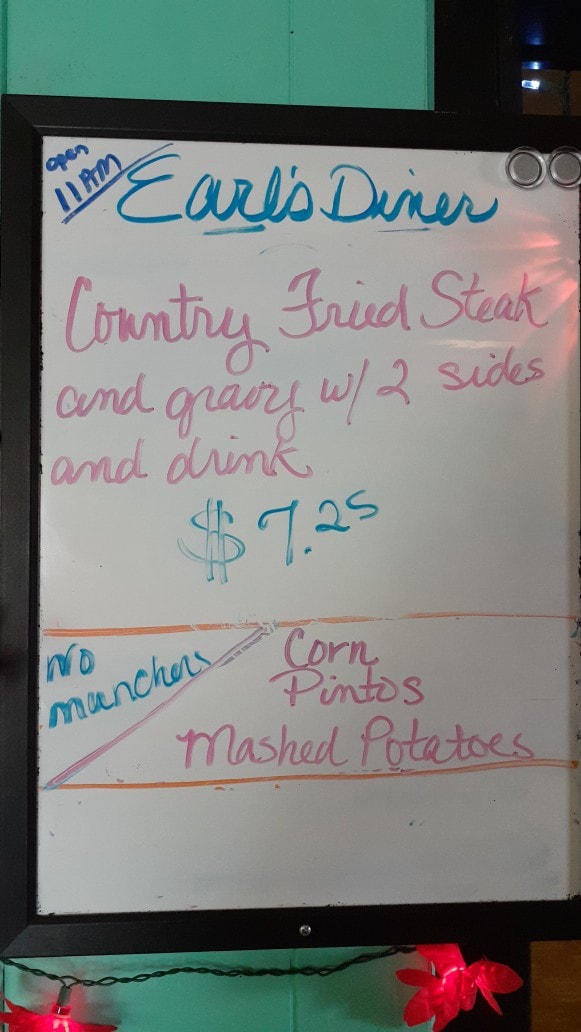 open
11 Am
Earl's Diner
Country Fried Steak
and gravy w/ 2 sides
and drink
$7.25
No
munchers
Corn
Pintos
Mashed Potatoes